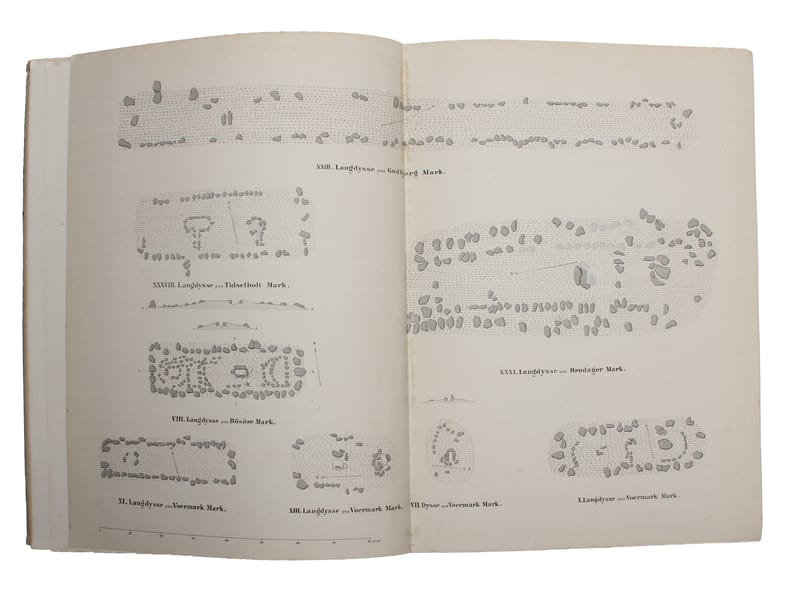 XXIII. Langdysse paa Gudbjerg Mark.
XXXVIII. Langdysse paa Tidselholt Mark.
XXXI. Langdysse paa Brudager Mark.
VIII. Langdysse paa Bösöre Mark.
XI. Langdysse paa Voermark Mark.
XIII. Langdysse paa Voermark Mark.
VII. Dysse paa Voermark Mark.
X. Langdysse paa Voermark Mark.